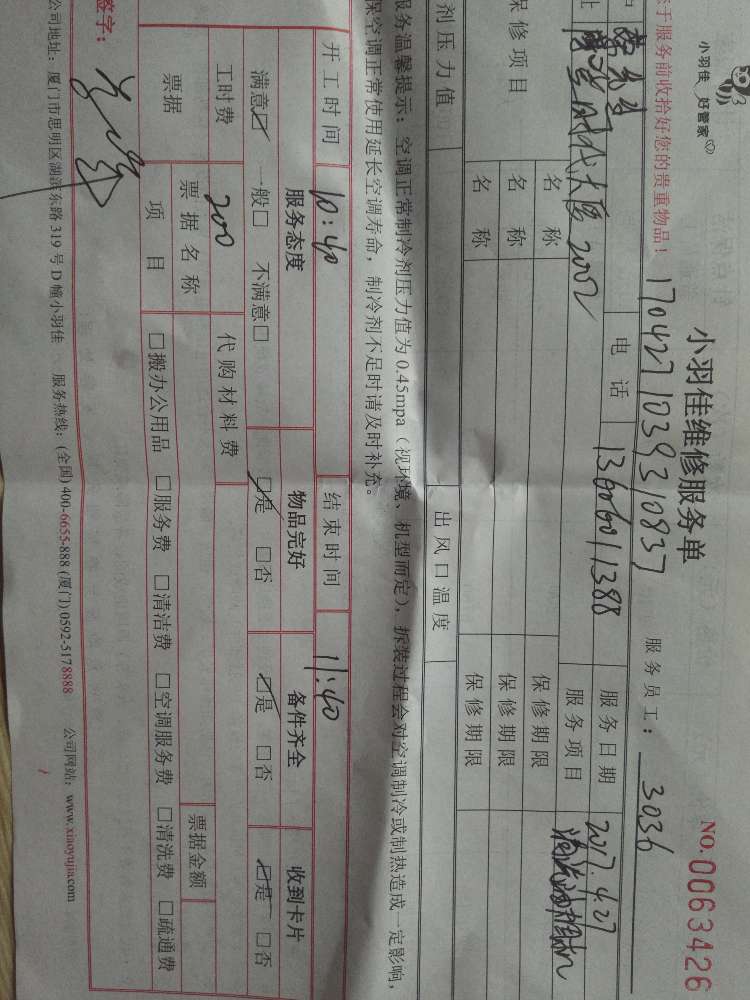 小羽佳 好管家
小羽佳维修服务单
NO. 0063426
手服务前收拾好您的贵重物品！
1704271039310837
服务员工： 3036
电话 13606011388 服务日期 2017.4.27
时代大厦2002 服务项目
保修项目 名称 保修期限
名称 保修期限
名称 保修期限
剂压力值 出风口温度
服务温馨提示：空调正常制冷剂压力值为0.45mpa（视环境、机型而定），拆装过程会对空调制冷或制热造成一定影响，
保空调正常使用延长空调寿命，制冷剂不足时请及时补充。
开工时间 10:40 结束时间 11:40
服务态度 物品完好 备件齐全 收到卡片
满意☑ 一般□ 不满意□ ☑是 □否 ☑是 □否 ☑是 □否
工时费 200 代购材料费
票据 票据名称 票据金额
项目 □搬办公用品 □服务费 □清洁费 □空调服务费 □清洗费 □疏通费
签字：
公司地址：厦门市思明区湖滨东路319号D幢小羽佳 服务热线：(全国) 400-6655-888 (厦门) 0592-5178888 公司网站：www.xiaoyujia.com